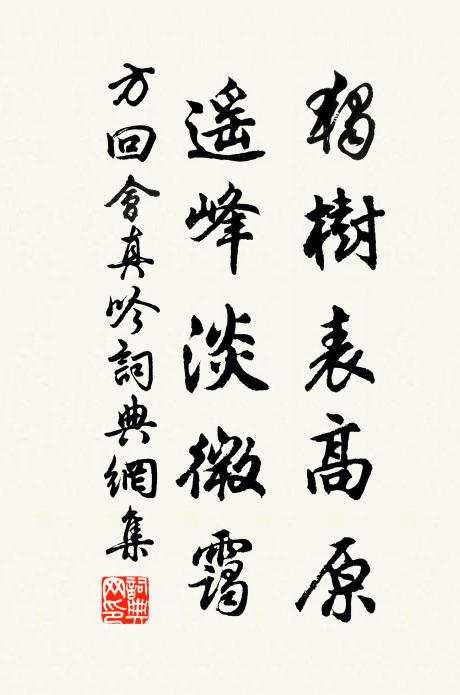 獨樹表高原
遥峰淡微靄
方回會真吟詞典網集
詞典網印